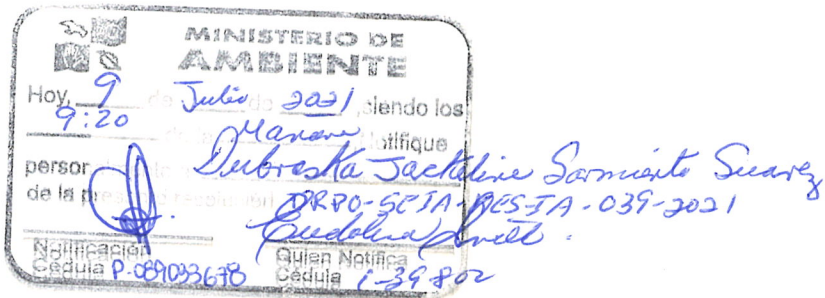 MINISTERIO DE
AMBIENTE
Hoy, 9 de Julio de 2021, siendo los
9:20 de la Manana Notifique
persor Dubraska Jackeline Sarmiento Suarez
de la presente resolución DRPO-SEIA-RES-IA-039-2021
Notificación Quien Notifica
Cédula P-089033678 Cédula